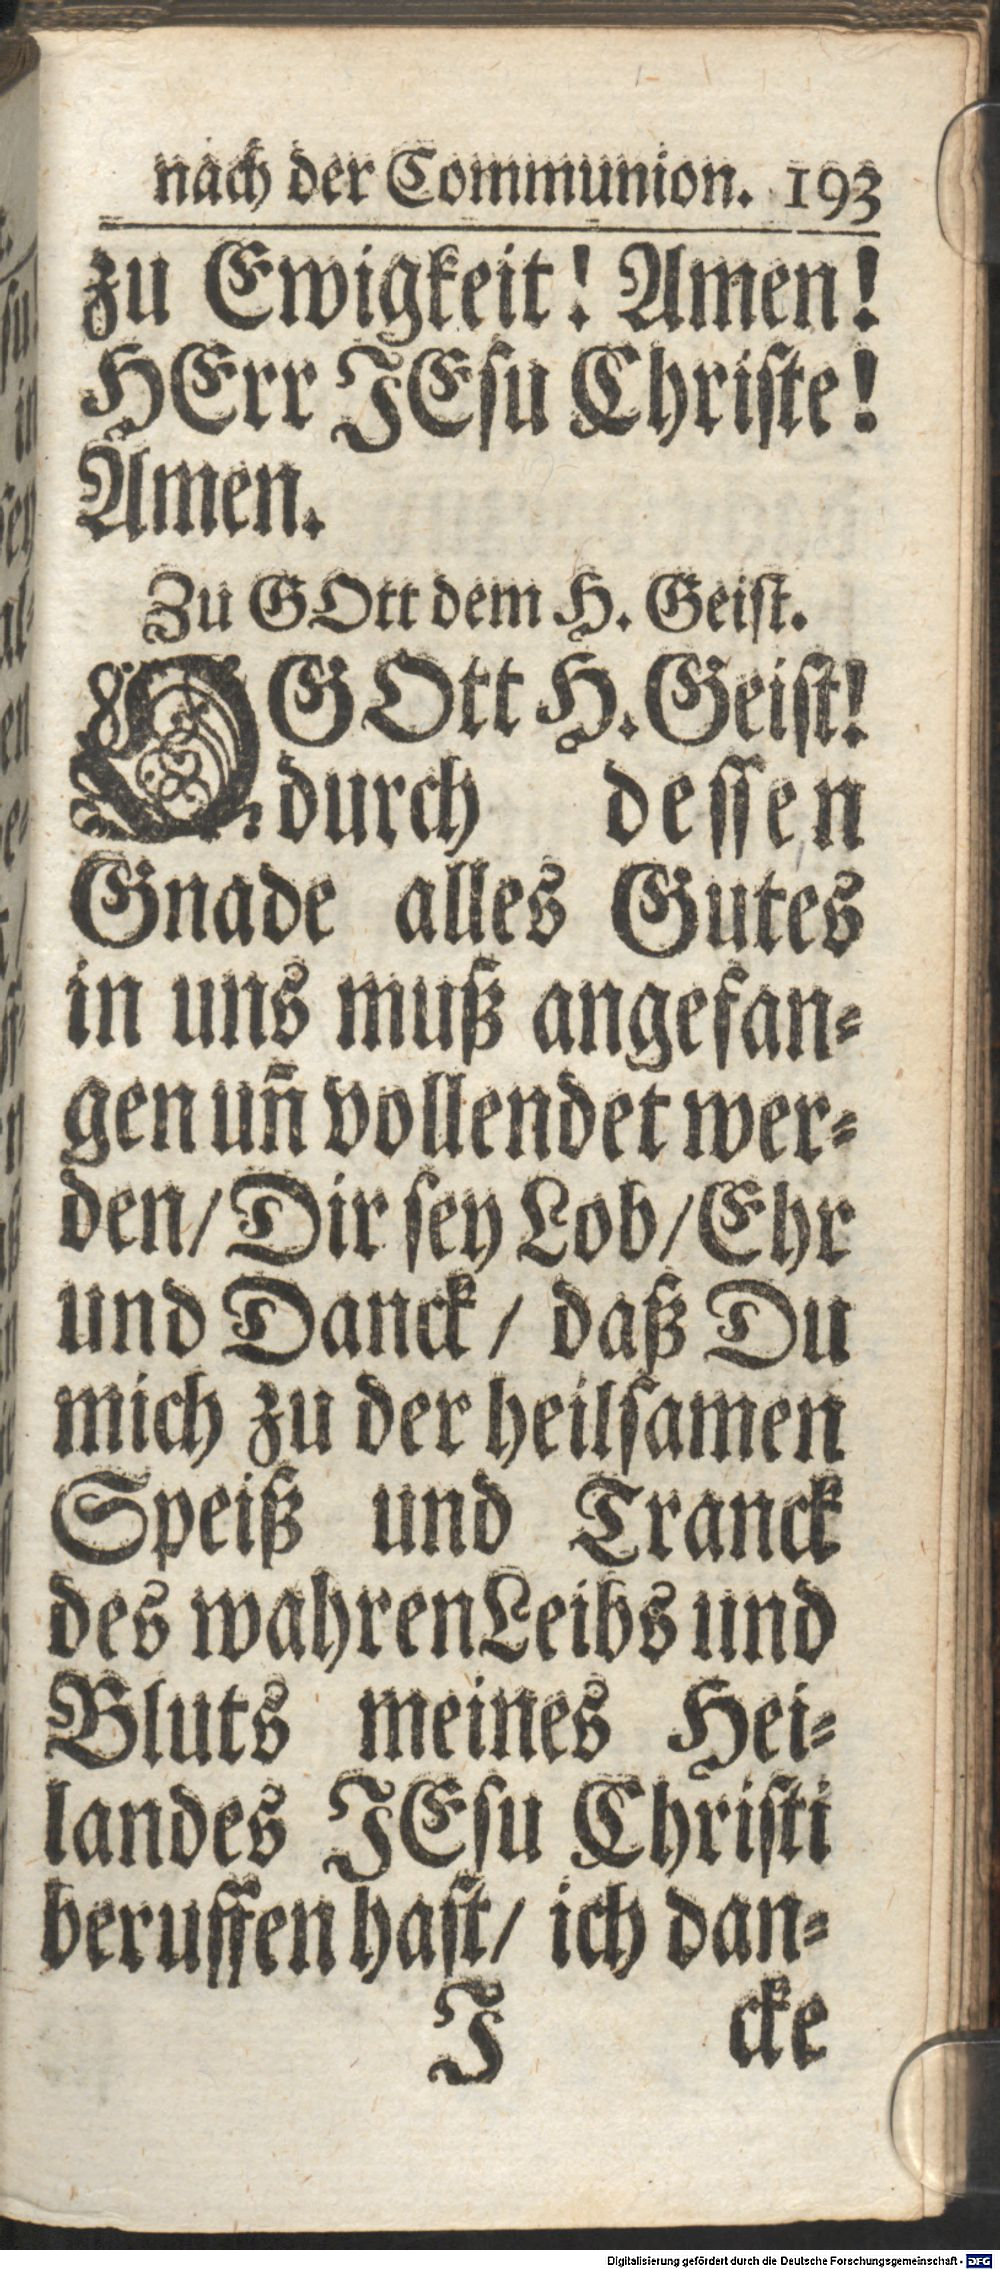 nach der Communion. 193
zu Ewigkeit! Amen!
HErr JEsu Christe!
Amen.
Zu GOtt dem H. Geist.
O GOtt H. Geist!
durch dessen
Gnade alles Gutes
in uns muß angefan-
gen un̄ vollendet wer-
den/ Dir sey Lob/ Ehr
und Danck/ daß Du
mich zu der heilsamen
Speiß und Tranck
des wahren Leibs und
Bluts meines Hei-
landes JEsu Christi
beruffen hast/ ich dan-
J cke
Digitalisierung gefördert durch die Deutsche Forschungsgemeinschaft - DFG